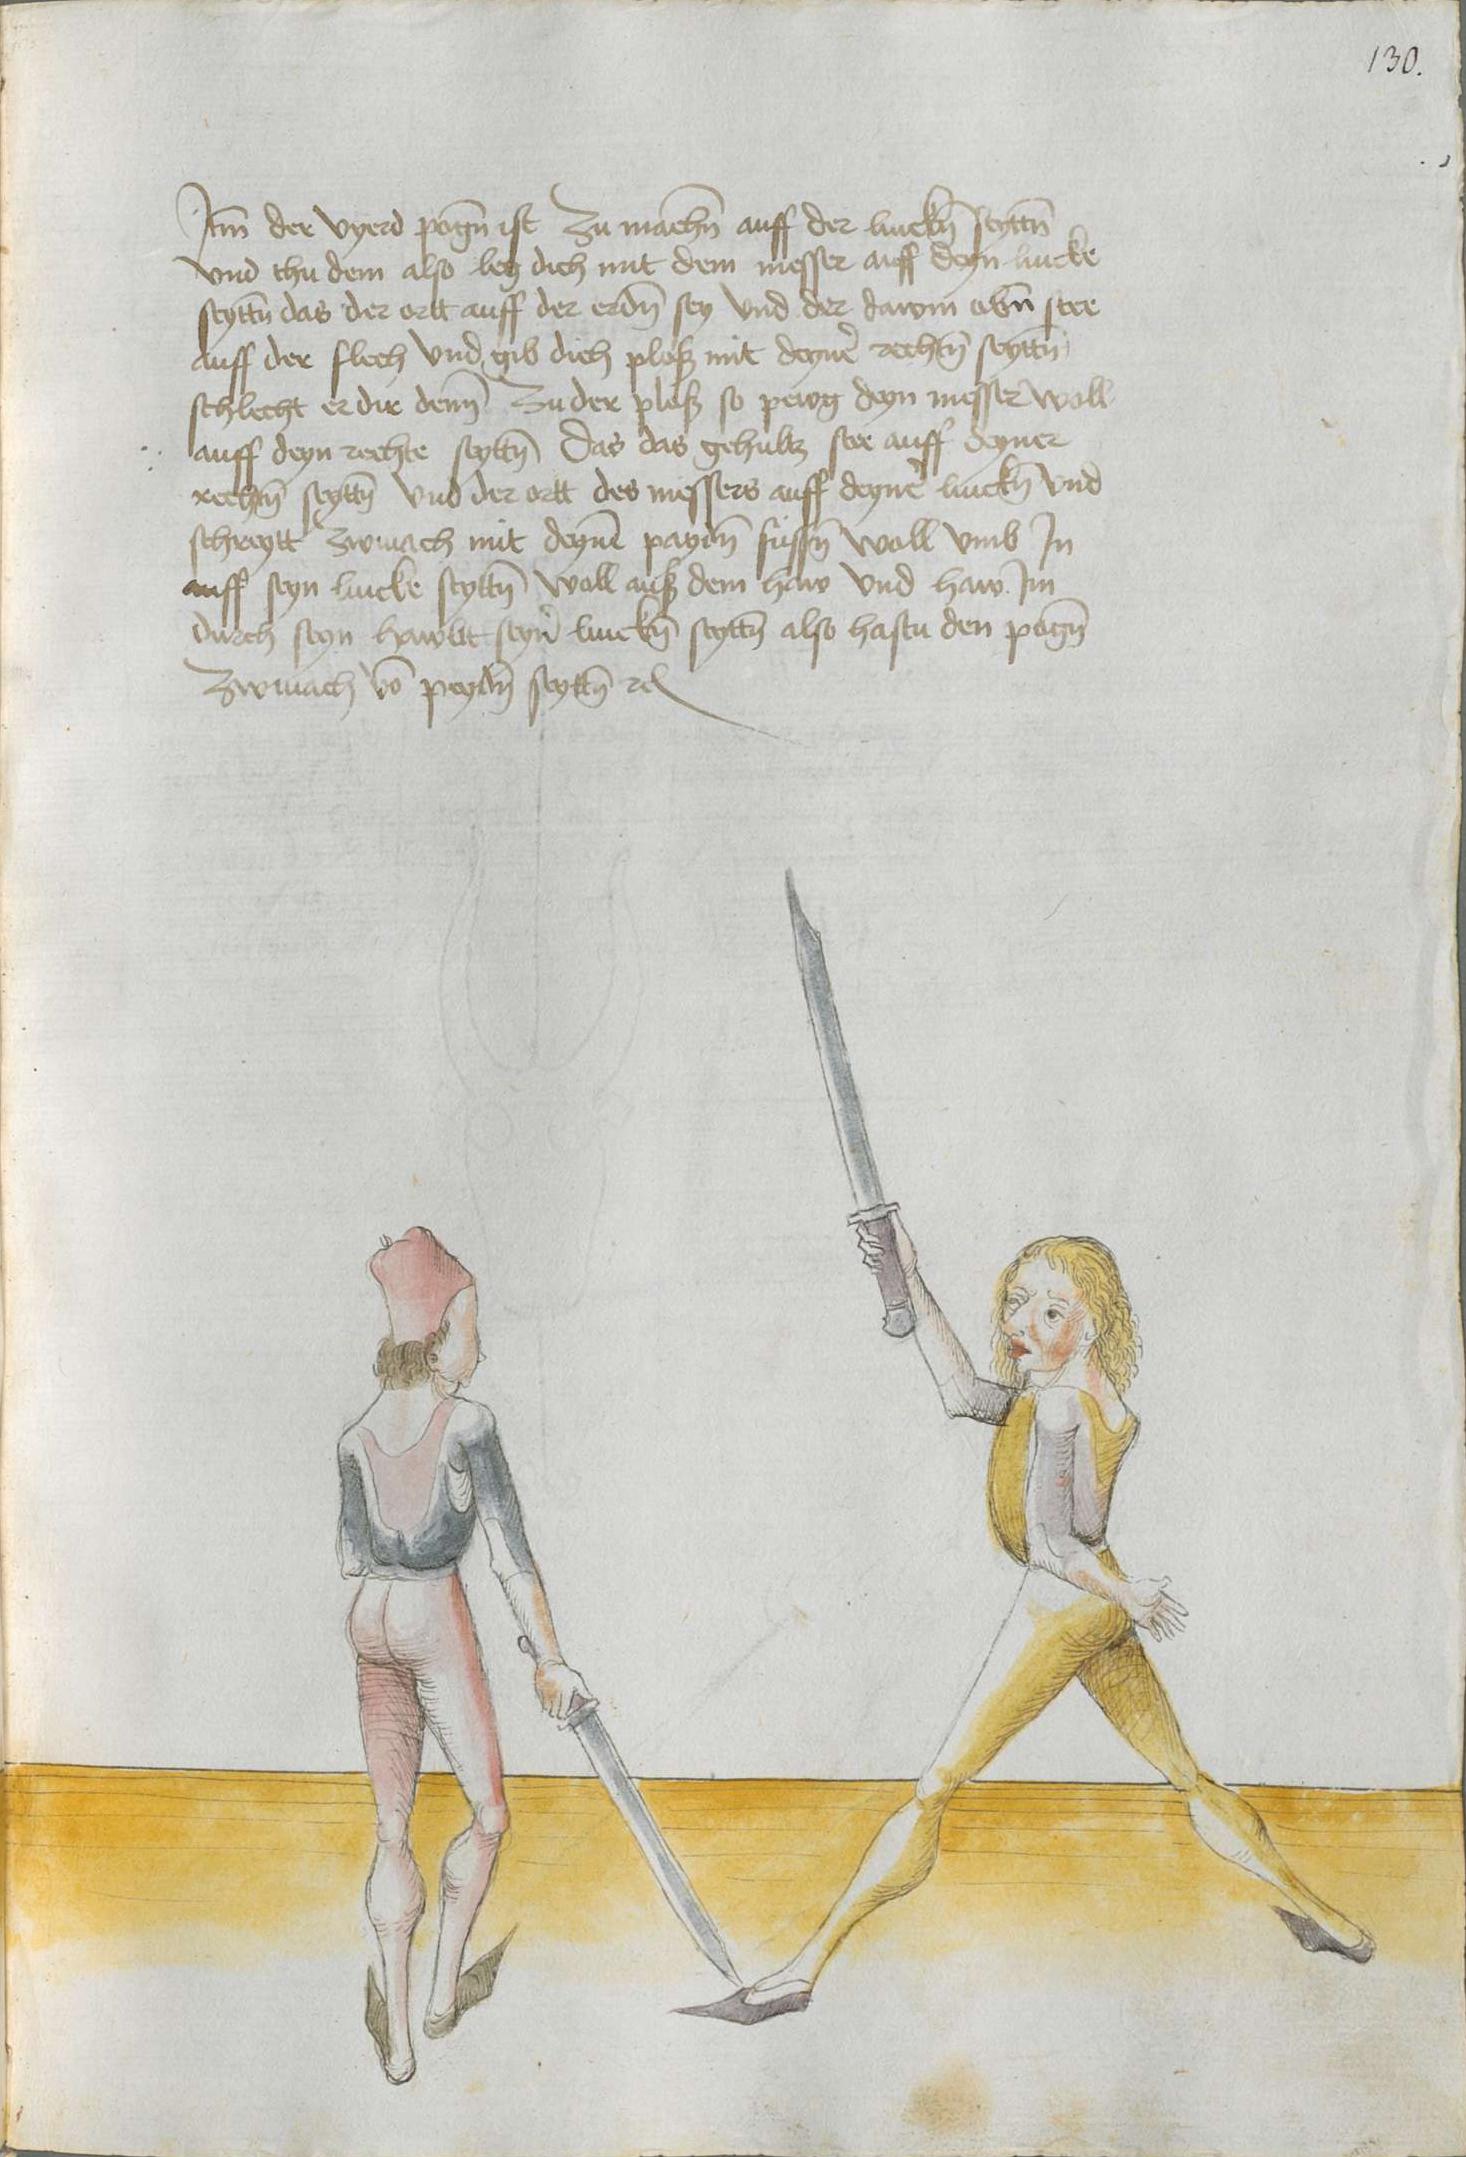 130.
Itm̄ der vyerd pogn̄ ist Zu machn̄ auff der linckn̄ seyttn̄
vnd thu dem also leg dich mit dem messer auff deyn lincke
seyttn̄ das der ortt auff der erdn̄ sey vnd der dawm obn̄ stee
auff der flech vnd gib dich ploß mit deyner̄ rechtn̄ seyttn̄
schlecht er dir denn̄ Zu der ploß so pewg deyn messer woll
auff deyn rechte seyttn̄ Das das gehultz stee auff deyner
rechtn̄ seyttn̄ vnd der ortt des messers auff deyner̄ linckn̄ vnd
schreytt Zwinach mit deyne̅ paydn̄ füssn̄ woll vmb In
auff seyn lincke seyttn̄ woll auß dem haw vnd haw Im
durch seyn hawbt seyn̄ linckn̄ seyttn̄ also hastu den pogn̄
Zwinach vo̅ peydn̄ seyttn̄ rc